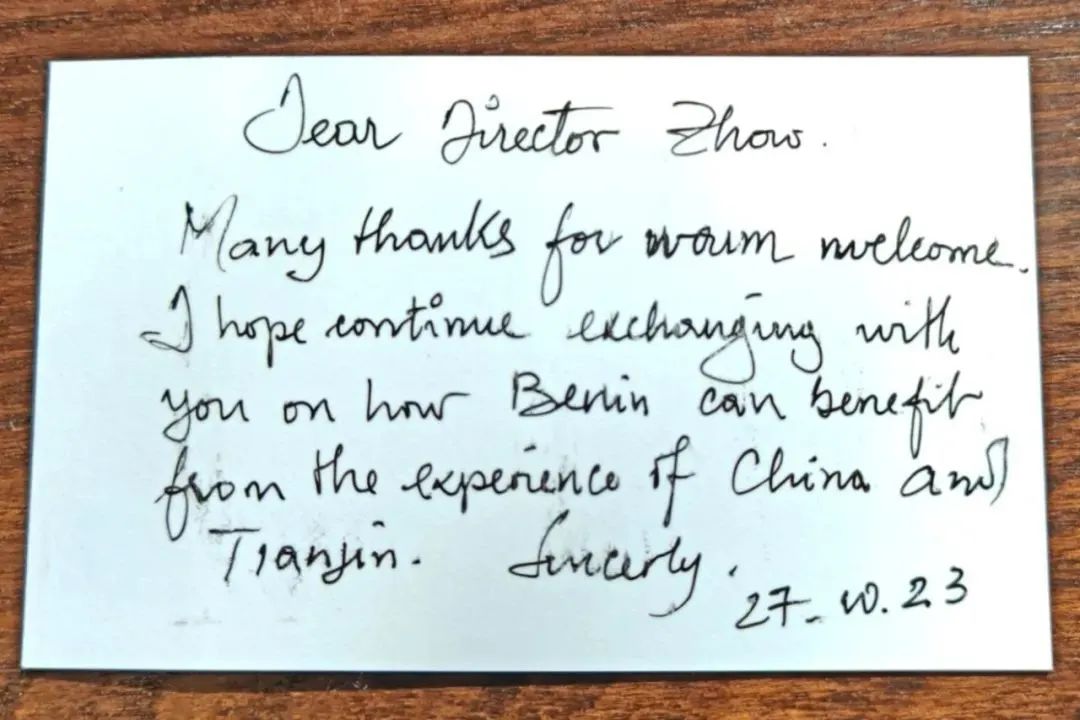 Dear Director Zhou.
Many thanks for warm welcome.
I hope continue exchanging with
you on how Benin can benefit
from the experience of China and
Tianjin. Sincerly.
27-10.23